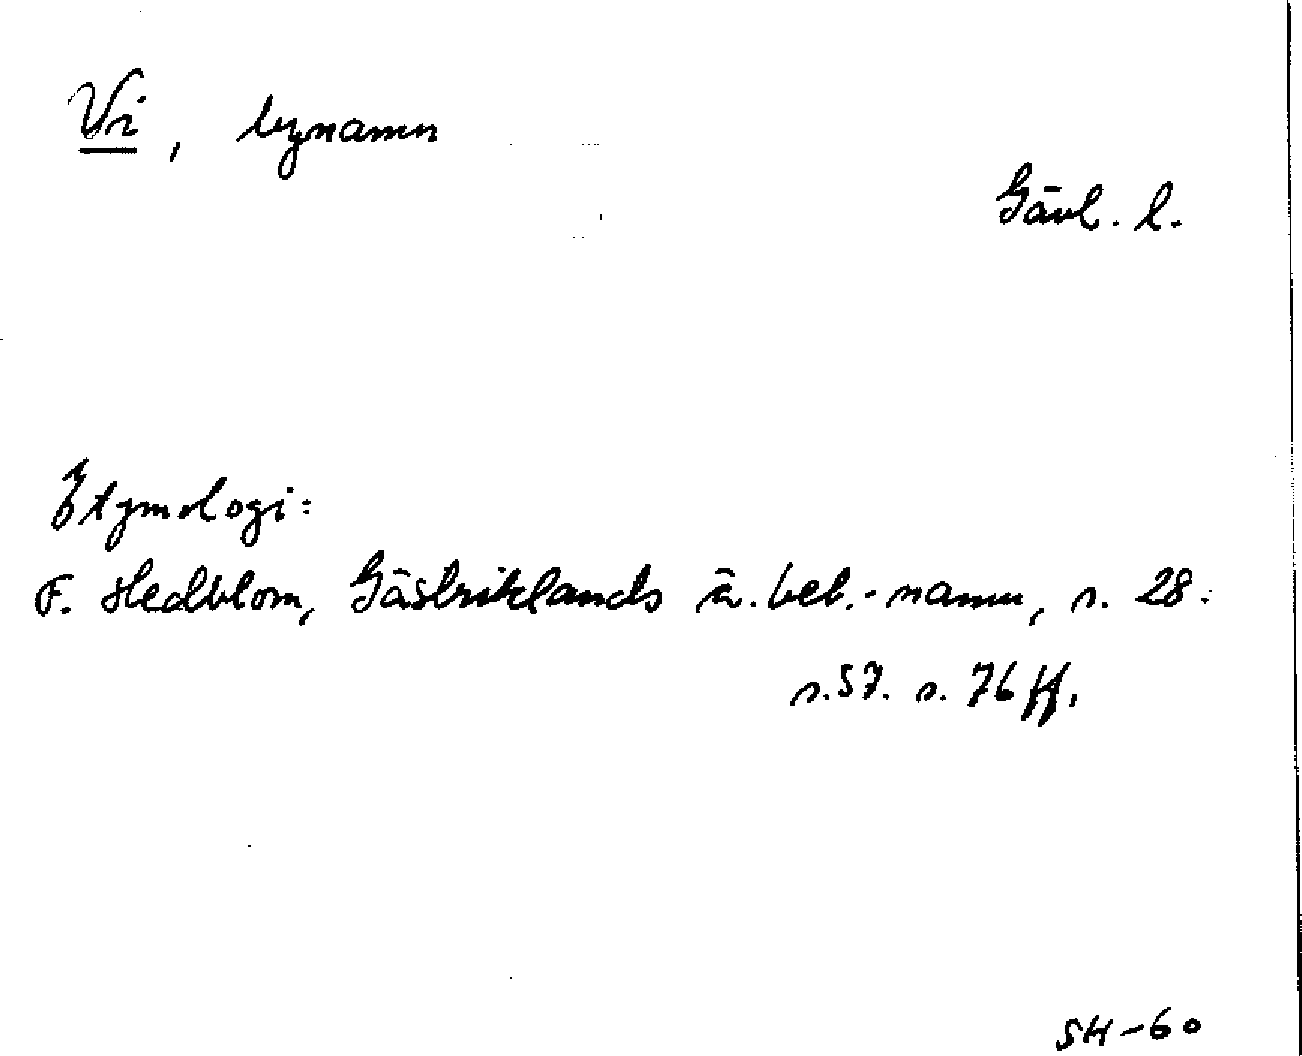 Vi, bynamn
Gävl. l.
Etymologi:
F. Hedblom, Gästriklands ä. beb.-namn, s. 28.
s. 57. s. 76 ff.
SH-60